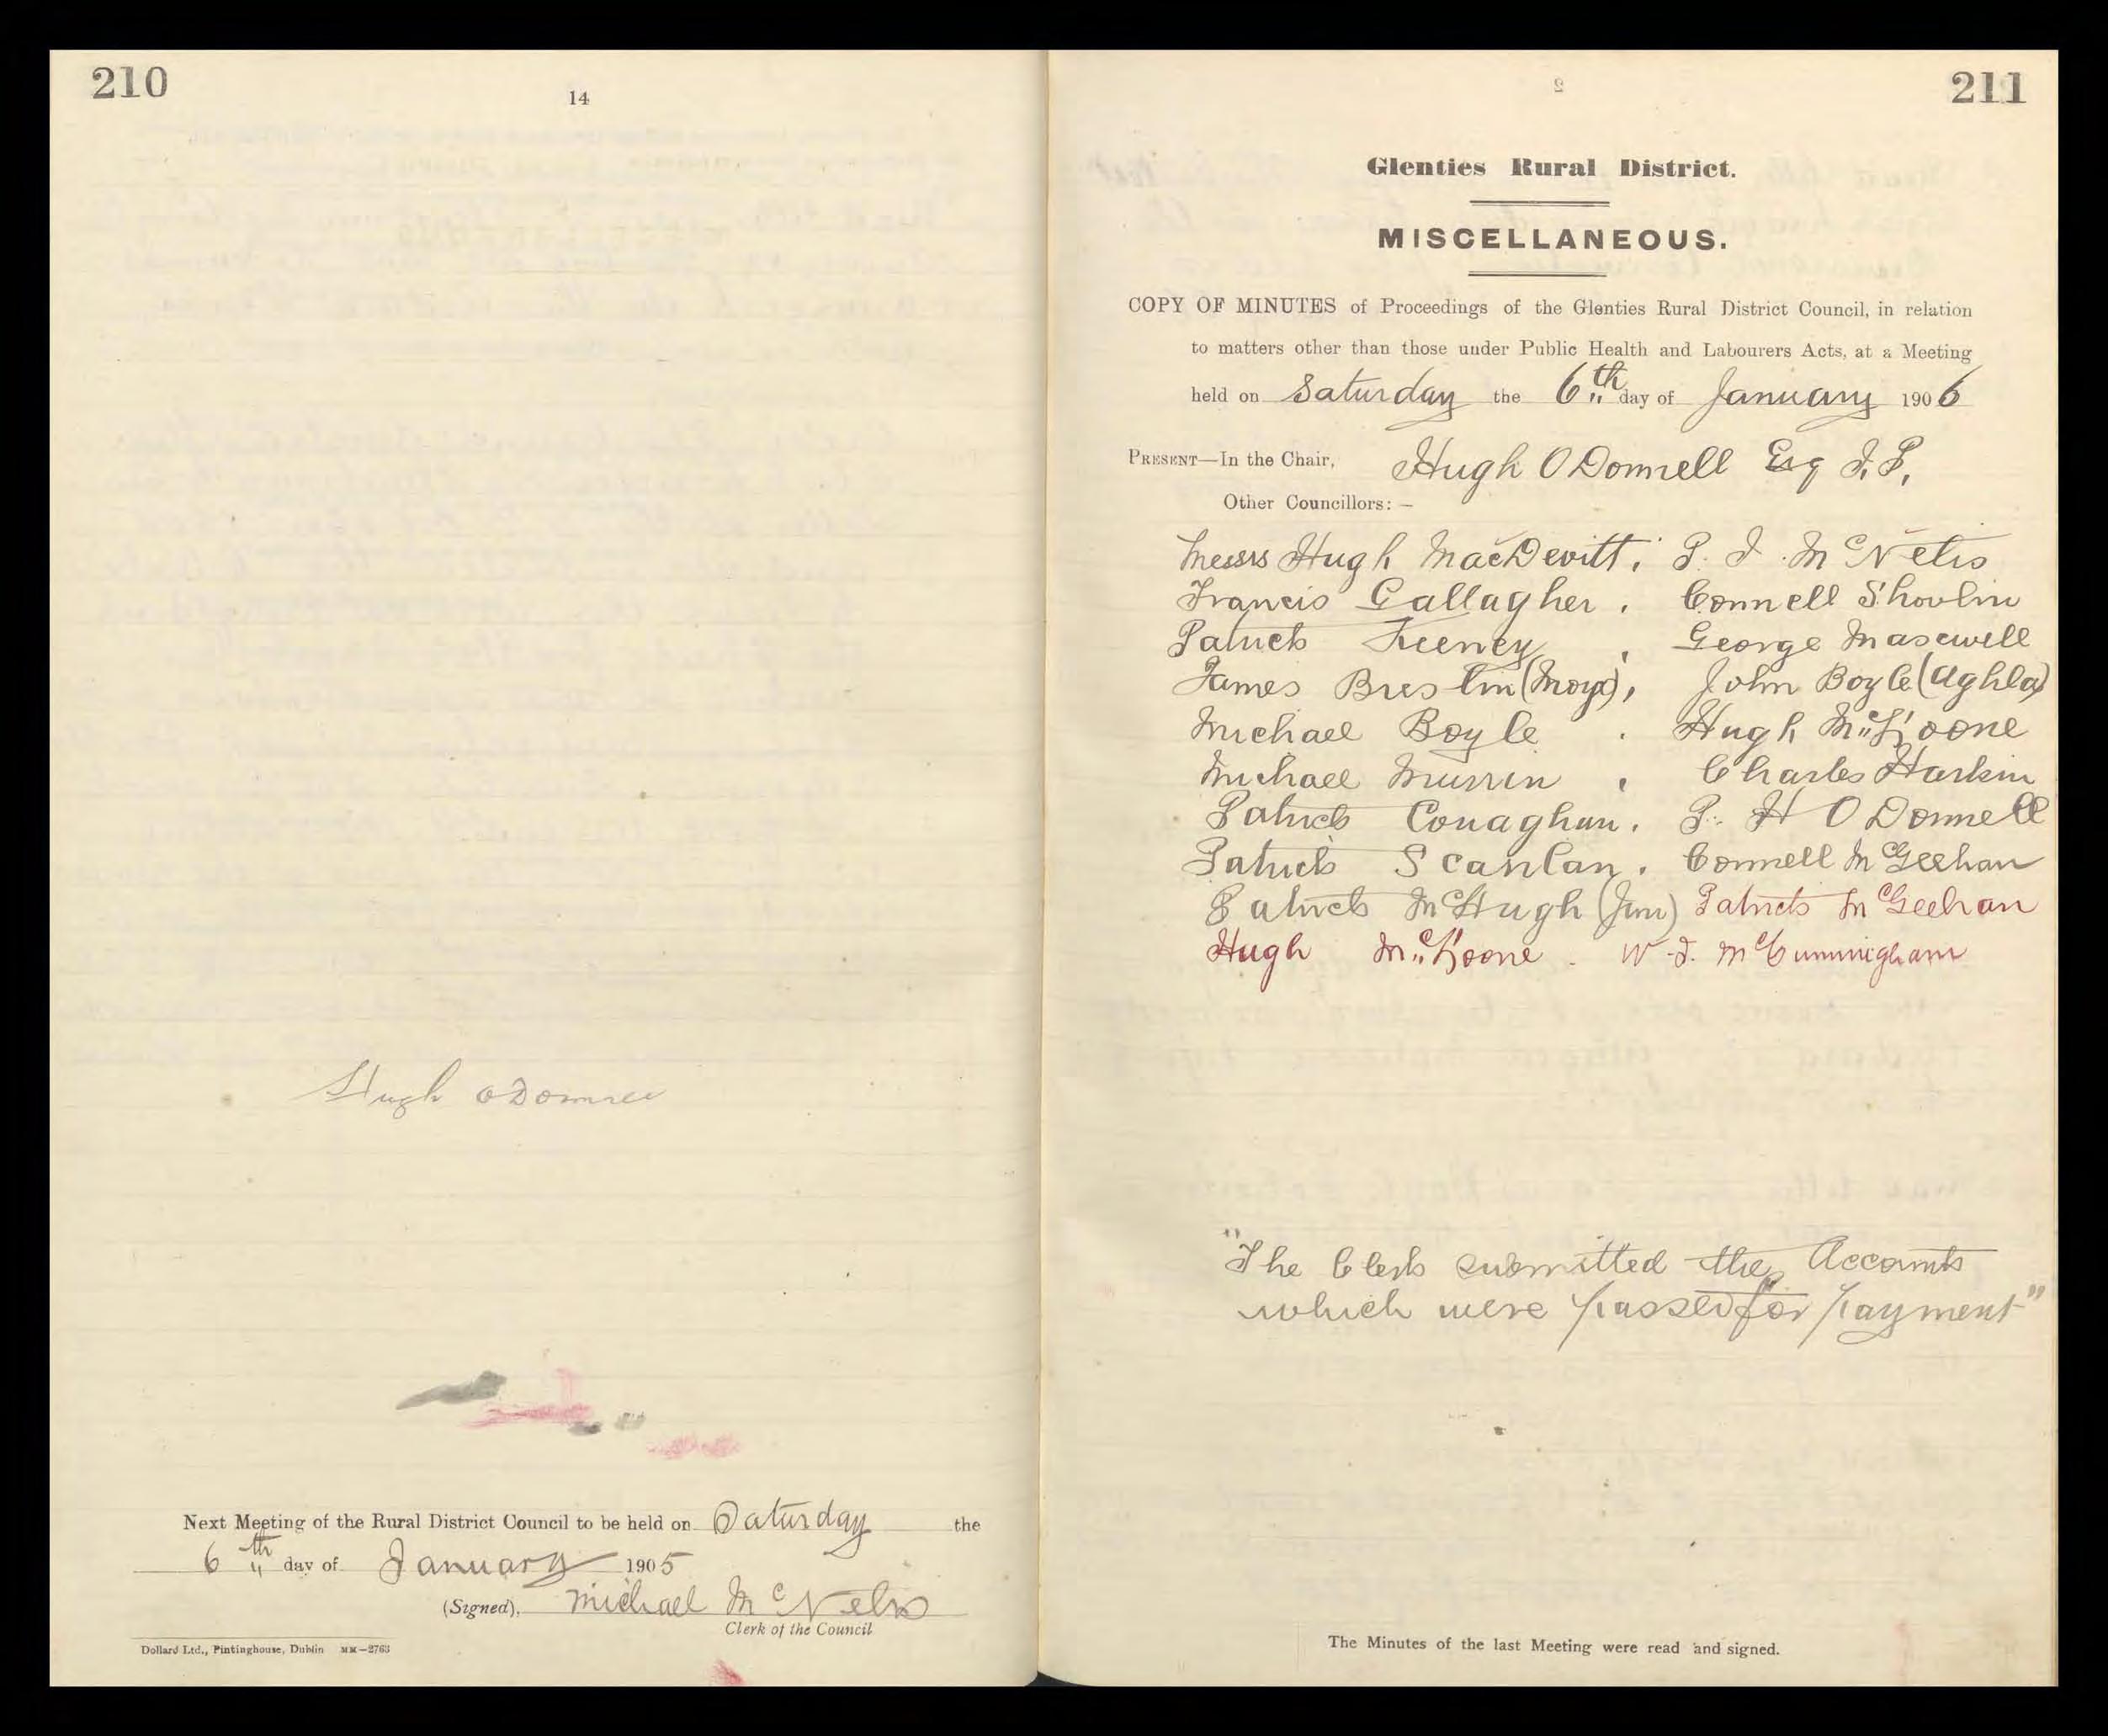 210
14
Hugh ODonnell
Next Meeting of the Rural District Council to be held on Saturday the
6th day of January 1905
(Signed), Michael McNelis
Clerk of the Council
Dollard Ltd., Pintinghouse, Dublin MM—2763
211
2
Glenties Rural District.
MISCELLANEOUS.
COPY OF MINUTES of Proceedings of the Glenties Rural District Council, in relation
to matters other than those under Public Health and Labourers Acts, at a Meeting
held on Saturday the 6th day of January 1906
PRESENT—In the Chair, Hugh ODonnell Esq J.P,
Other Councillors: —
Messrs Hugh MacDevitt, P. J. McNelis
Francis Gallagher, Connell Shovlin
Patrick Keeney, George Maxwell
James Breslin (Moyx), John Boyle (Aghla)
Michael Boyle. Hugh McKoone
Michael Murrin, Charles Harkin
Patrick Conaghan. P. H ODonnell
Patrick Scanlan. Connell McGeehan
Patrick McHugh (Jun) Patrick McGeehan
Hugh McKoone. W. J. McCunningham
"The Clerk submitted the Accounts
which were passed for payment"
The Minutes of the last Meeting were read and signed.